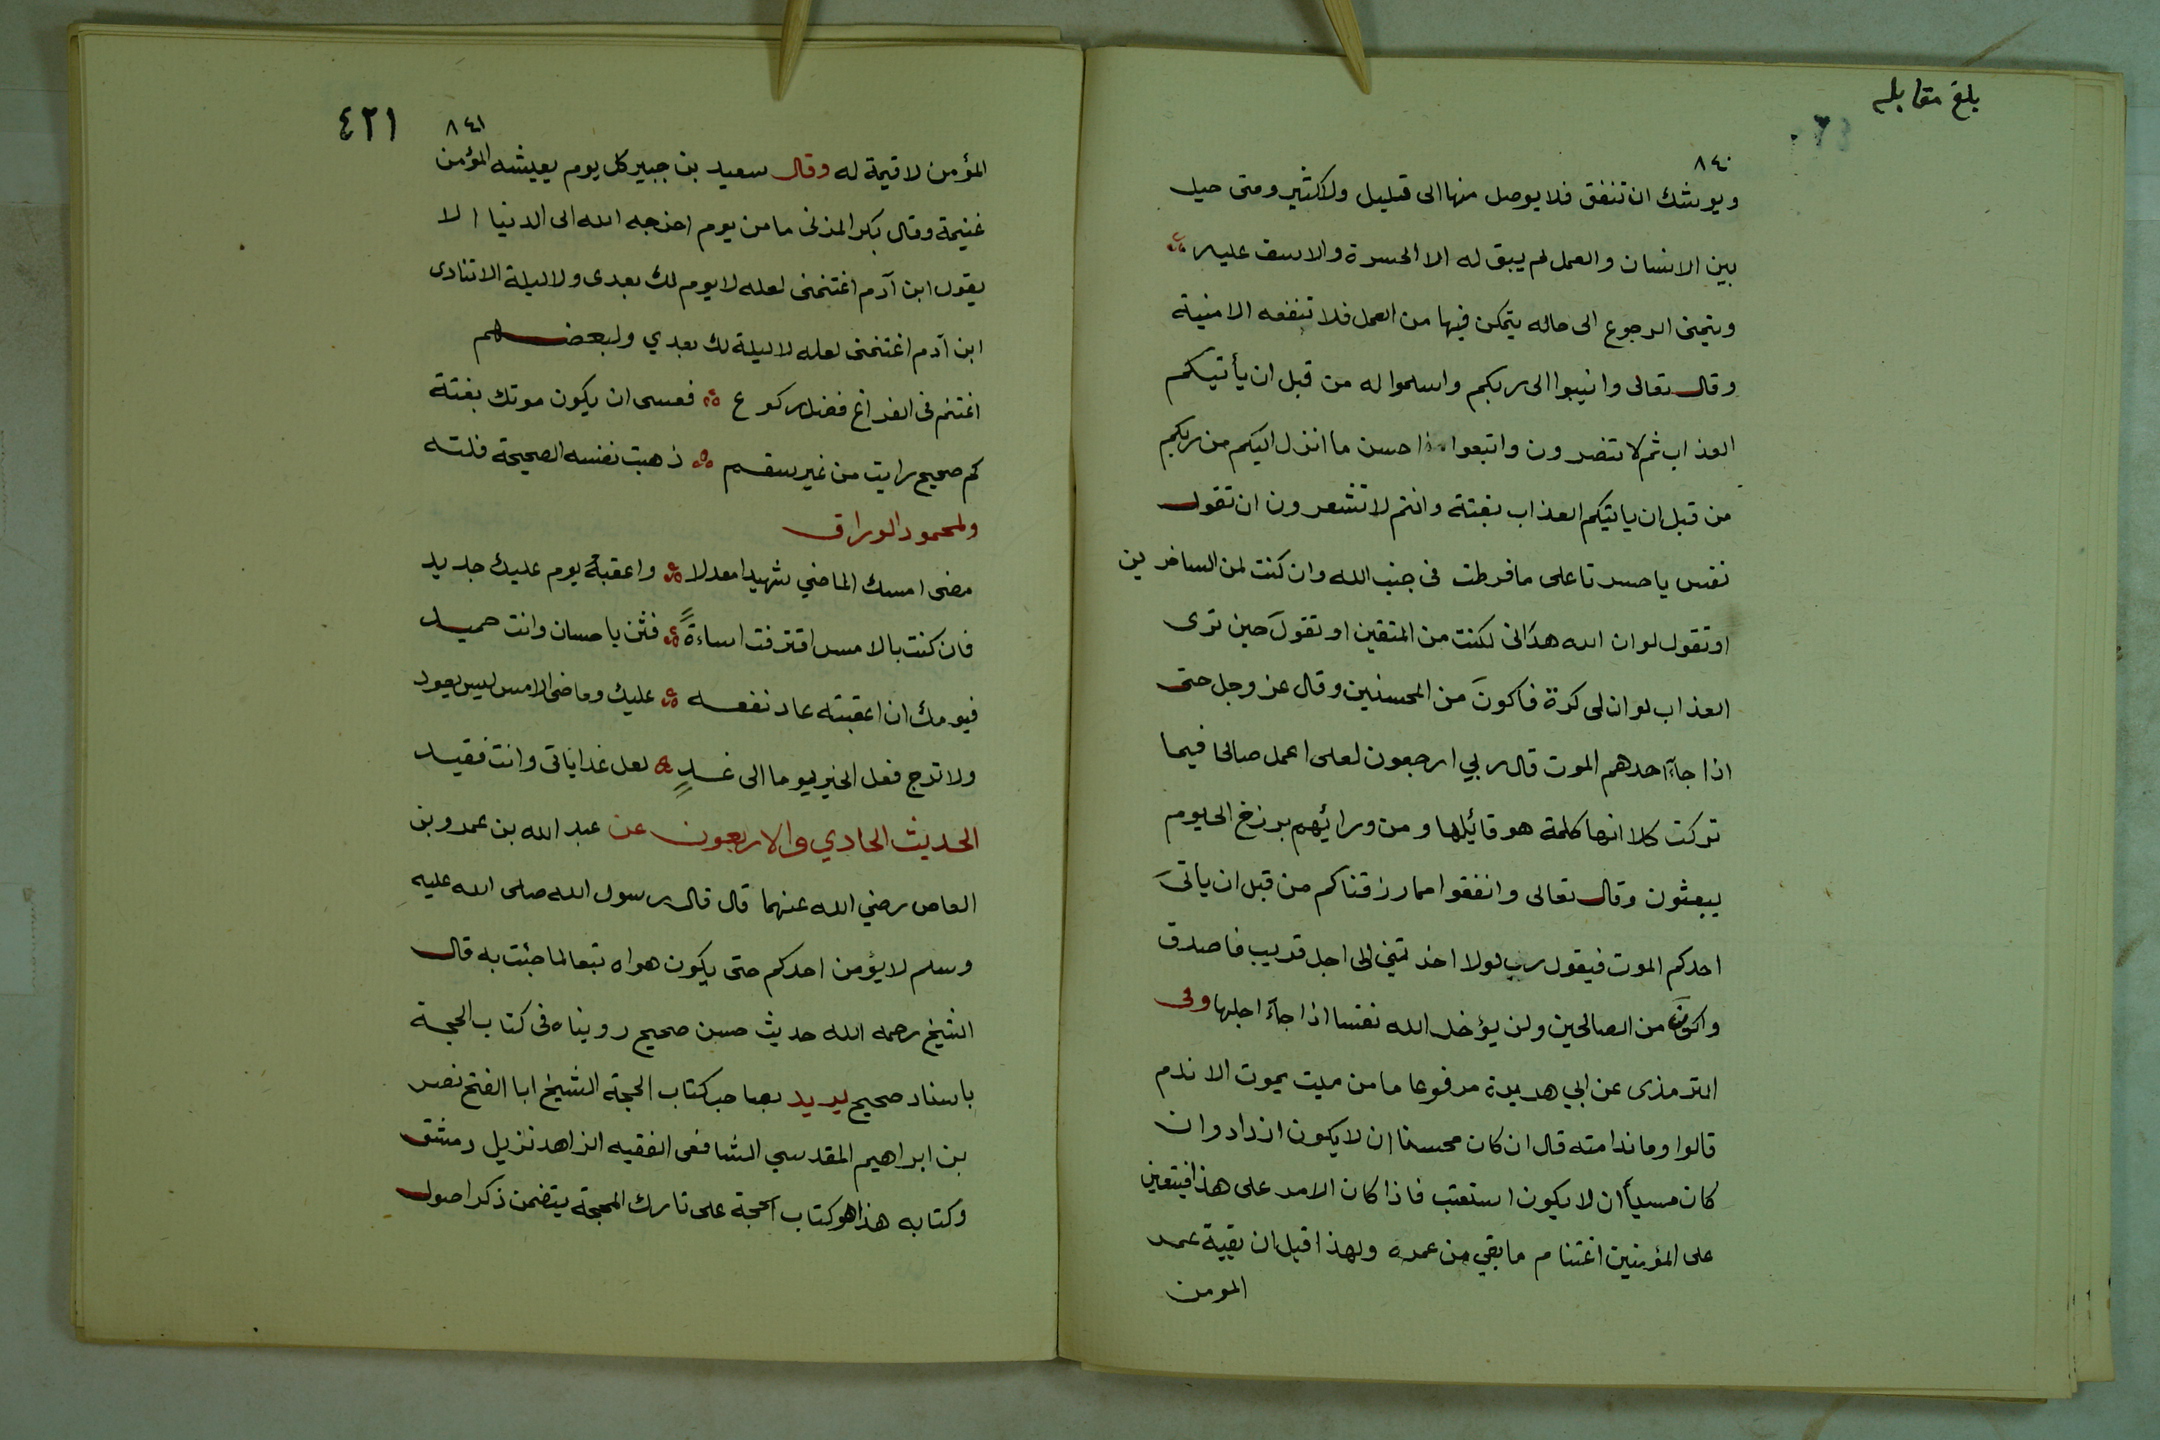 بلغ مقابله
٨٤٠
ويوشك ان تنفق فلا يوصل منها الى قليل ولا كثير ومتى حيل
بين الانسان والعمل لم يبق له الا الحسرة والاسف عليه
ويتمنى الرجوع الى حاله يتمكن فيها من العمل فلا تنفعه الامنية
وقال تعالى وانيبوا الى ربكم واسلموا له من قبل ان يأتيكم
العذاب ثم لا تنصرون واتبعوا احسن ما انزل اليكم من ربكم
من قبل ان ياتيكم العذاب بغتة وانتم لا تشعرون ان تقول
نفس يا حسرتا على ما فرطت فى جنب الله وان كنت لمن الساخرين
او تقول لو ان الله هدانى لكنت من المتقين او تقولَ حين ترى
العذاب لو ان لى كرة فاكونَ من المحسنين وقال عز وجل حتى
اذا جاءَ احدهم الموت قال ربي ارجعون لعلى اعمل صالحا فيما
تركت كلا انها كلمة هو قائلها ومن ورائهم برزخ الى يوم
يبعثون وقال تعالى وانفقوا مما رزقناكم من قبل ان ياتىَ
احدكم الموت فيقول رب لولا اخرتني الى اجل قريب فاصدق
واكونَ من الصالحين ولن يؤخر الله نفسا اذا جآءَ اجلها وفى
الترمذى عن ابي هريرة مرفوعا ما من ميت يموت الا ندم
قالوا وما ندامته قال ان كان محسنا ان لا يكون ازداد وان
كان مسيأ ان لا يكون استعتب فاذا كان الامر على هذا فيتعين
على المؤمنين اغتنام ما بقي من عمره ولهذا قيل ان بقية عمر
المومن
٤٢١
٨٤١
المؤمن لا قيمة له وقال سعيد بن جبير كل يوم يعيشه المؤمن
غنيمة وقال بكر المزنى ما من يوم اخرجه الله الى الدنيا الا
يقول ابن آدم اغتنمنى لعله لا يوم لك بعدى ولا ليلة الا تنادى
ابن آدم اغتنمنى لعله لا ليلة لك بعدي ولبعضهم
اغتنم فى الفراغ فضل ركوع فعسى ان يكون موتك بغتة
كم صحيح رايت من غير سقم ذهبت نفسه الصحيحة فلته
ولمحمود الوراق
مضى امسك الماضي شهيدا معدلا واعقبه يوم عليك جديد
فان كنت بالامس اقترفت اساءةً فثن باحسان وانت حميد
فيومك ان اعقبته عاد نفعه عليك وماضى الامس ليس يعود
ولا ترج فعل الخير يوما الى غدٍ لعل غدا ياتى وانت فقيد
الحديث الحادي والاربعون عن عبد الله بن عمرو بن
العاص رضي الله عنهما قال قال رسول الله صلى الله عليه
وسلم لا يؤمن احدكم حتى يكون هواه تبعا لما جئت به قال
الشيخ رحمه الله حديث حسن صحيح رويناه فى كتاب الحجة
باسناد صحيح يريد بصاحب كتاب الحجة الشيخ ابا الفتح نصر
بن ابراهيم المقدسي الشافعى الفقيه الزاهد نزيل دمشق
وكتابه هذا هو كتاب الحجة على تارك المحجة يتضمن ذكر اصول